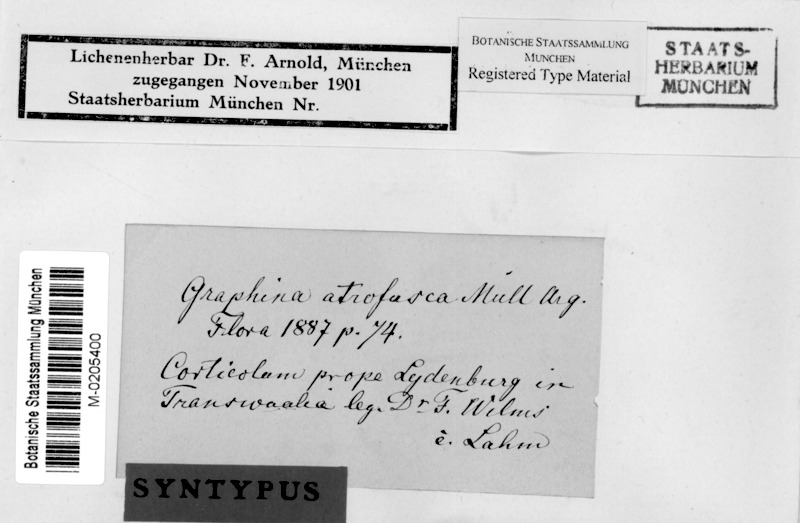 Lichenenherbar Dr. F. Arnold, München
zugegangen November 1901
Staatsherbarium München Nr.
BOTANISCHE STAATSSAMMLUNG
MUNCHEN
Registered Type Material
STAATS-
HERBARIUM
MÜNCHEN
Botanische Staatssammlung München
M-0205400
Graphina atrofusca Müll Arg.
Flora 1887 p. 74.
Corticolam prope Lydenburg in
Transwaalia leg. Dr. F. Wilms
c. Lahm
SYNTYPUS